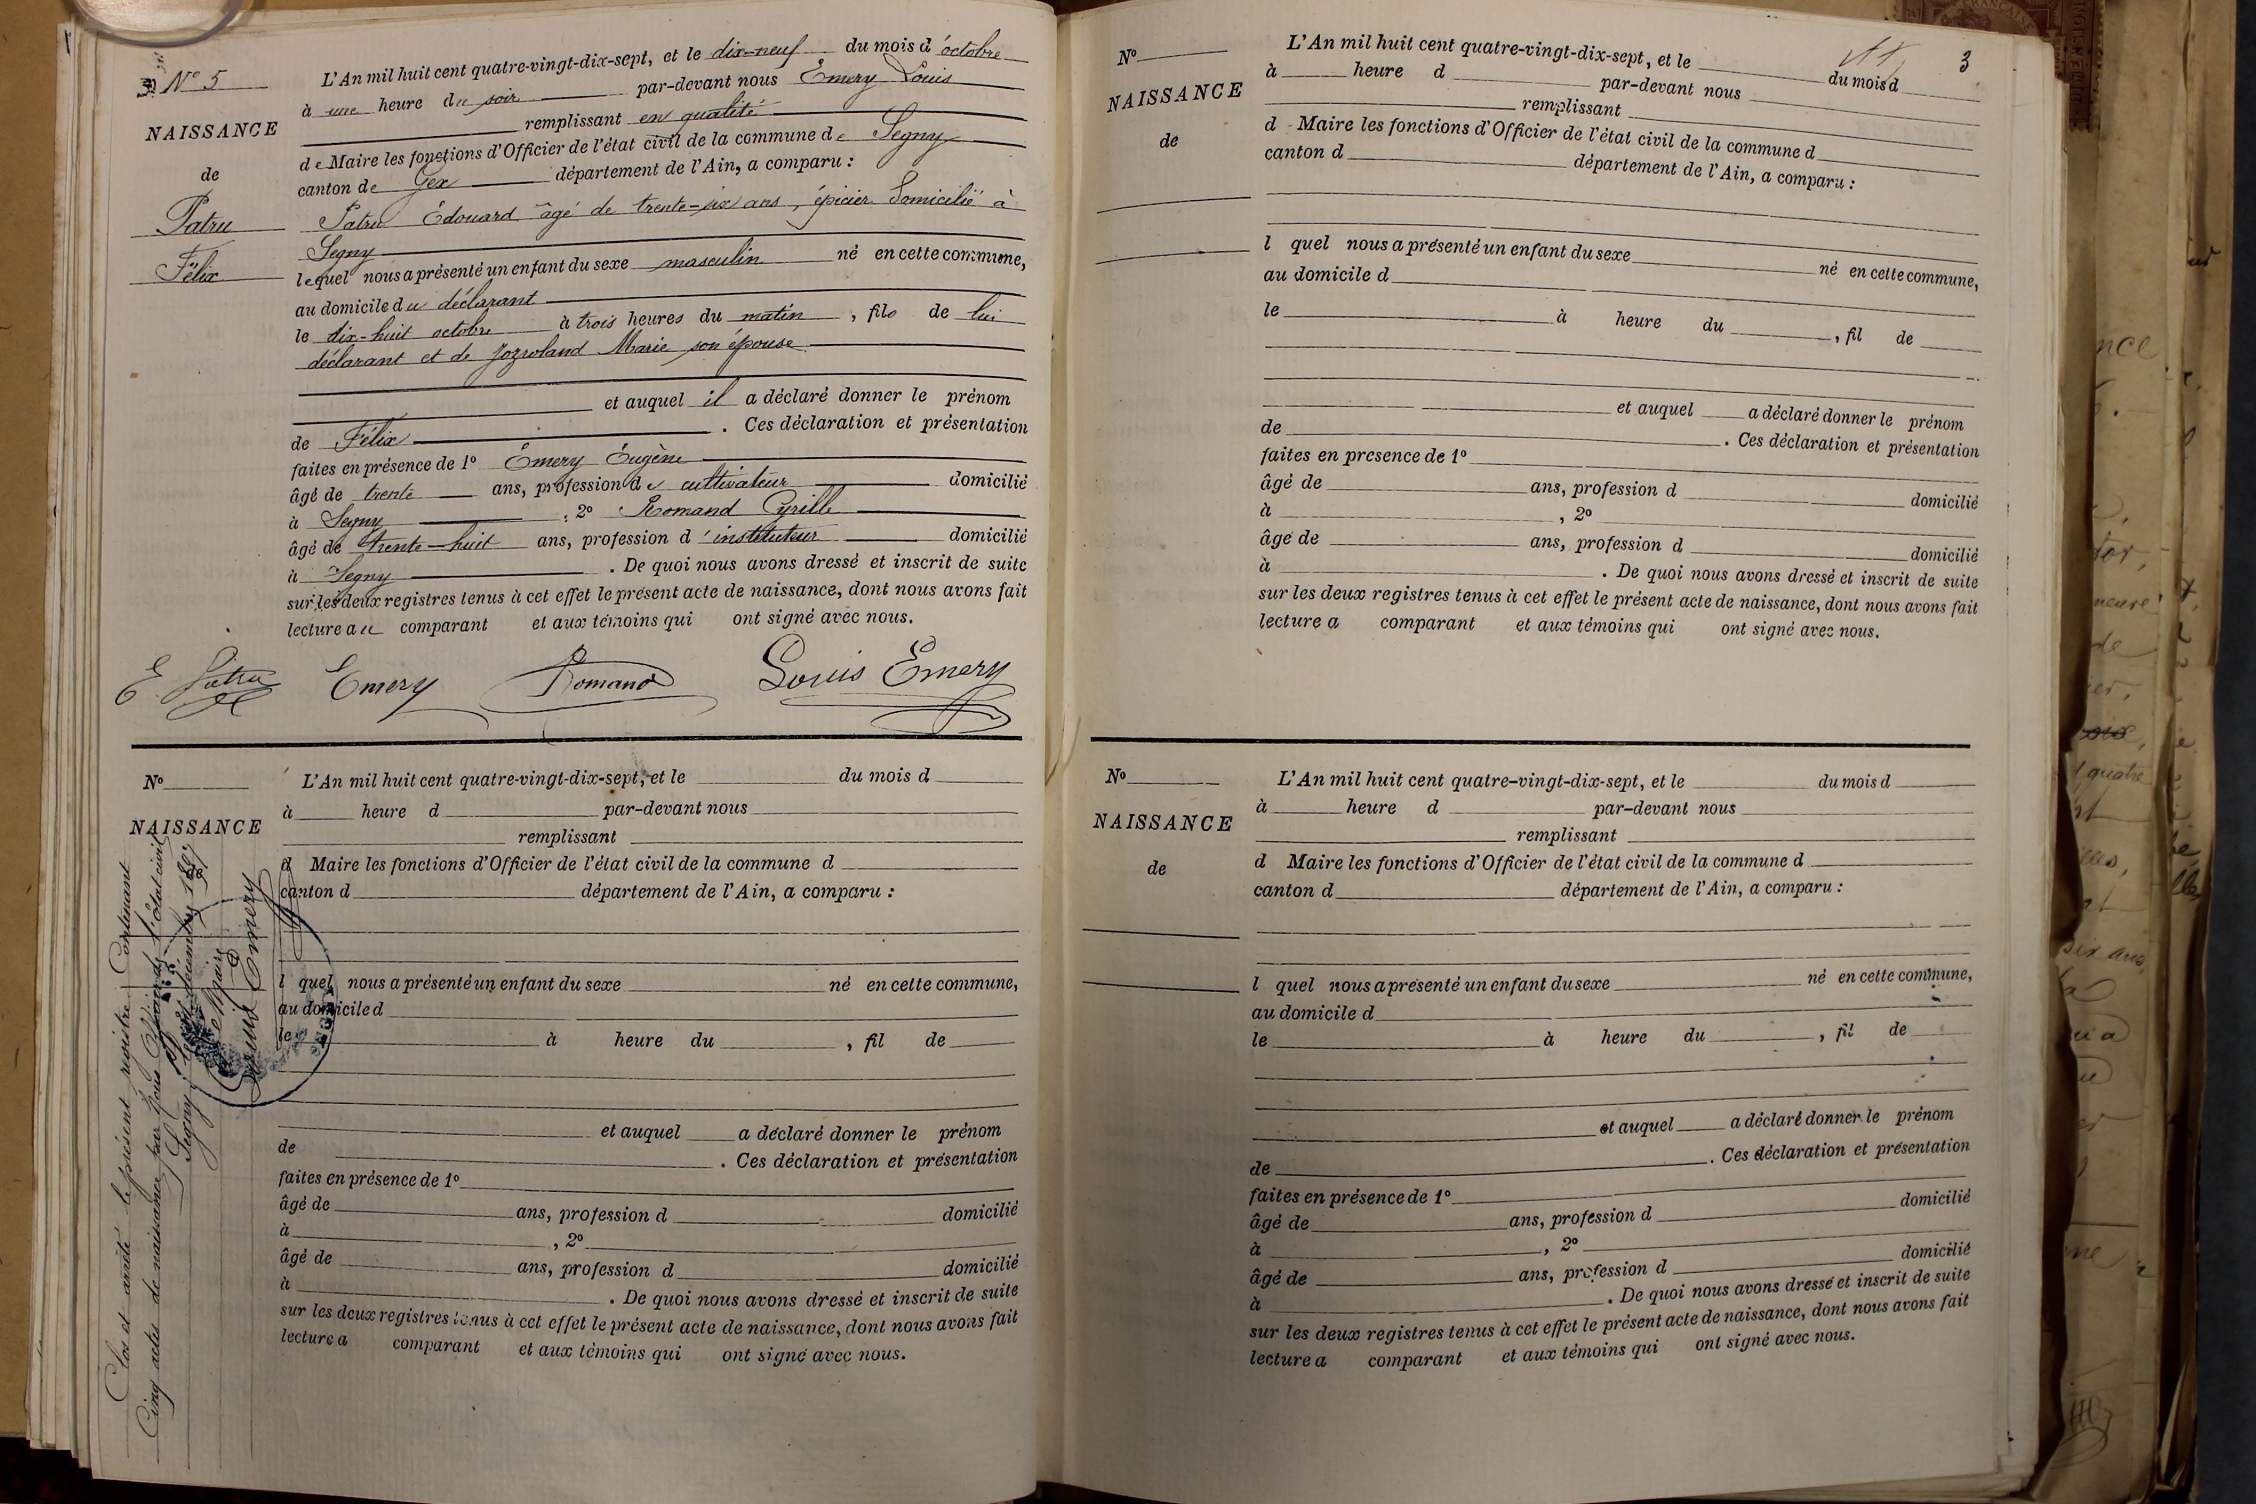 N° 5
NAISSANCE
de
Patru
Félix
L'An mil huit cent quatre-vingt-dix-sept, et le dix-neuf du mois d'octobre
à une heure du soir par-devant nous Émery Louis
remplissant en qualité
de Maire les fonctions d'Officier de l'état civil de la commune de Segny
canton de Gex département de l'Ain, a comparu :
Patru Édouard âgé de trente-six ans, épicier domicilié à
Segny
lequel nous a présenté un enfant du sexe masculin né en cette commune,
au domicile du déclarant
le dix-huit octobre à trois heures du matin, fils de lui
déclarant et de Marie son épouse
et auquel il a déclaré donner le prénom
de Félix. Ces déclaration et présentation
faites en présence de 1° Émery Eugène
âgé de trente ans, profession de cultivateur domicilié
à Segny, 2° Romand Cyrille
âgé de trente-huit ans, profession d'instituteur domicilié
à Segny. De quoi nous avons dressé et inscrit de suite
sur les deux registres tenus à cet effet le présent acte de naissance, dont nous avons fait
lecture au comparant et aux témoins qui ont signé avec nous.
E Patru Emery Romand Louis Emery
N°
NAISSANCE
L'An mil huit cent quatre-vingt-dix-sept, et le du mois d
à heure d par-devant nous
remplissant
d Maire les fonctions d'Officier de l'état civil de la commune d
canton d département de l'Ain, a comparu :
l quel nous a présenté un enfant du sexe né en cette commune,
au domicile d
le à heure du , fil de
et auquel a déclaré donner le prénom
de . Ces déclaration et présentation
faites en présence de 1°
âgé de ans, profession d domicilié
à , 2°
âgé de ans, profession d domicilié
à . De quoi nous avons dressé et inscrit de suite
sur les deux registres tenus à cet effet le présent acte de naissance, dont nous avons fait
lecture a comparant et aux témoins qui ont signé avec nous.
Clos et arrêté le présent registre Contenant
Cinq actes de naissance par Nous Officier de l'état civil
Segny, décembre 1897
Le Maire
Louis Emery
3
N°
NAISSANCE
de
L'An mil huit cent quatre-vingt-dix-sept, et le du mois d
à heure d par-devant nous
remplissant
d Maire les fonctions d'Officier de l'état civil de la commune d
canton d département de l'Ain, a comparu :
l quel nous a présenté un enfant du sexe né en cette commune,
au domicile d
le à heure du , fil de
et auquel a déclaré donner le prénom
de . Ces déclaration et présentation
faites en presence de 1°
âgé de ans, profession d domicilié
à , 2°
âgé de ans, profession d domicilié
à . De quoi nous avons dressé et inscrit de suite
sur les deux registres tenus à cet effet le présent acte de naissance, dont nous avons fait
lecture a comparant et aux témoins qui ont signé avec nous.
N°
NAISSANCE
de
L'An mil huit cent quatre-vingt-dix-sept, et le du mois d
à heure d par-devant nous
remplissant
d Maire les fonctions d'Officier de l'état civil de la commune d
canton d département de l'Ain, a comparu :
l quel nous a présenté un enfant du sexe né en cette commune,
au domicile d
le à heure du , fil de
et auquel a déclaré donner le prénom
de . Ces déclaration et présentation
faites en présence de 1°
âgé de ans, profession d domicilié
à , 2°
âgé de ans, profession d domicilié
à . De quoi nous avons dressé et inscrit de suite
sur les deux registres tenus à cet effet le présent acte de naissance, dont nous avons fait
lecture a comparant et aux témoins qui ont signé avec nous.